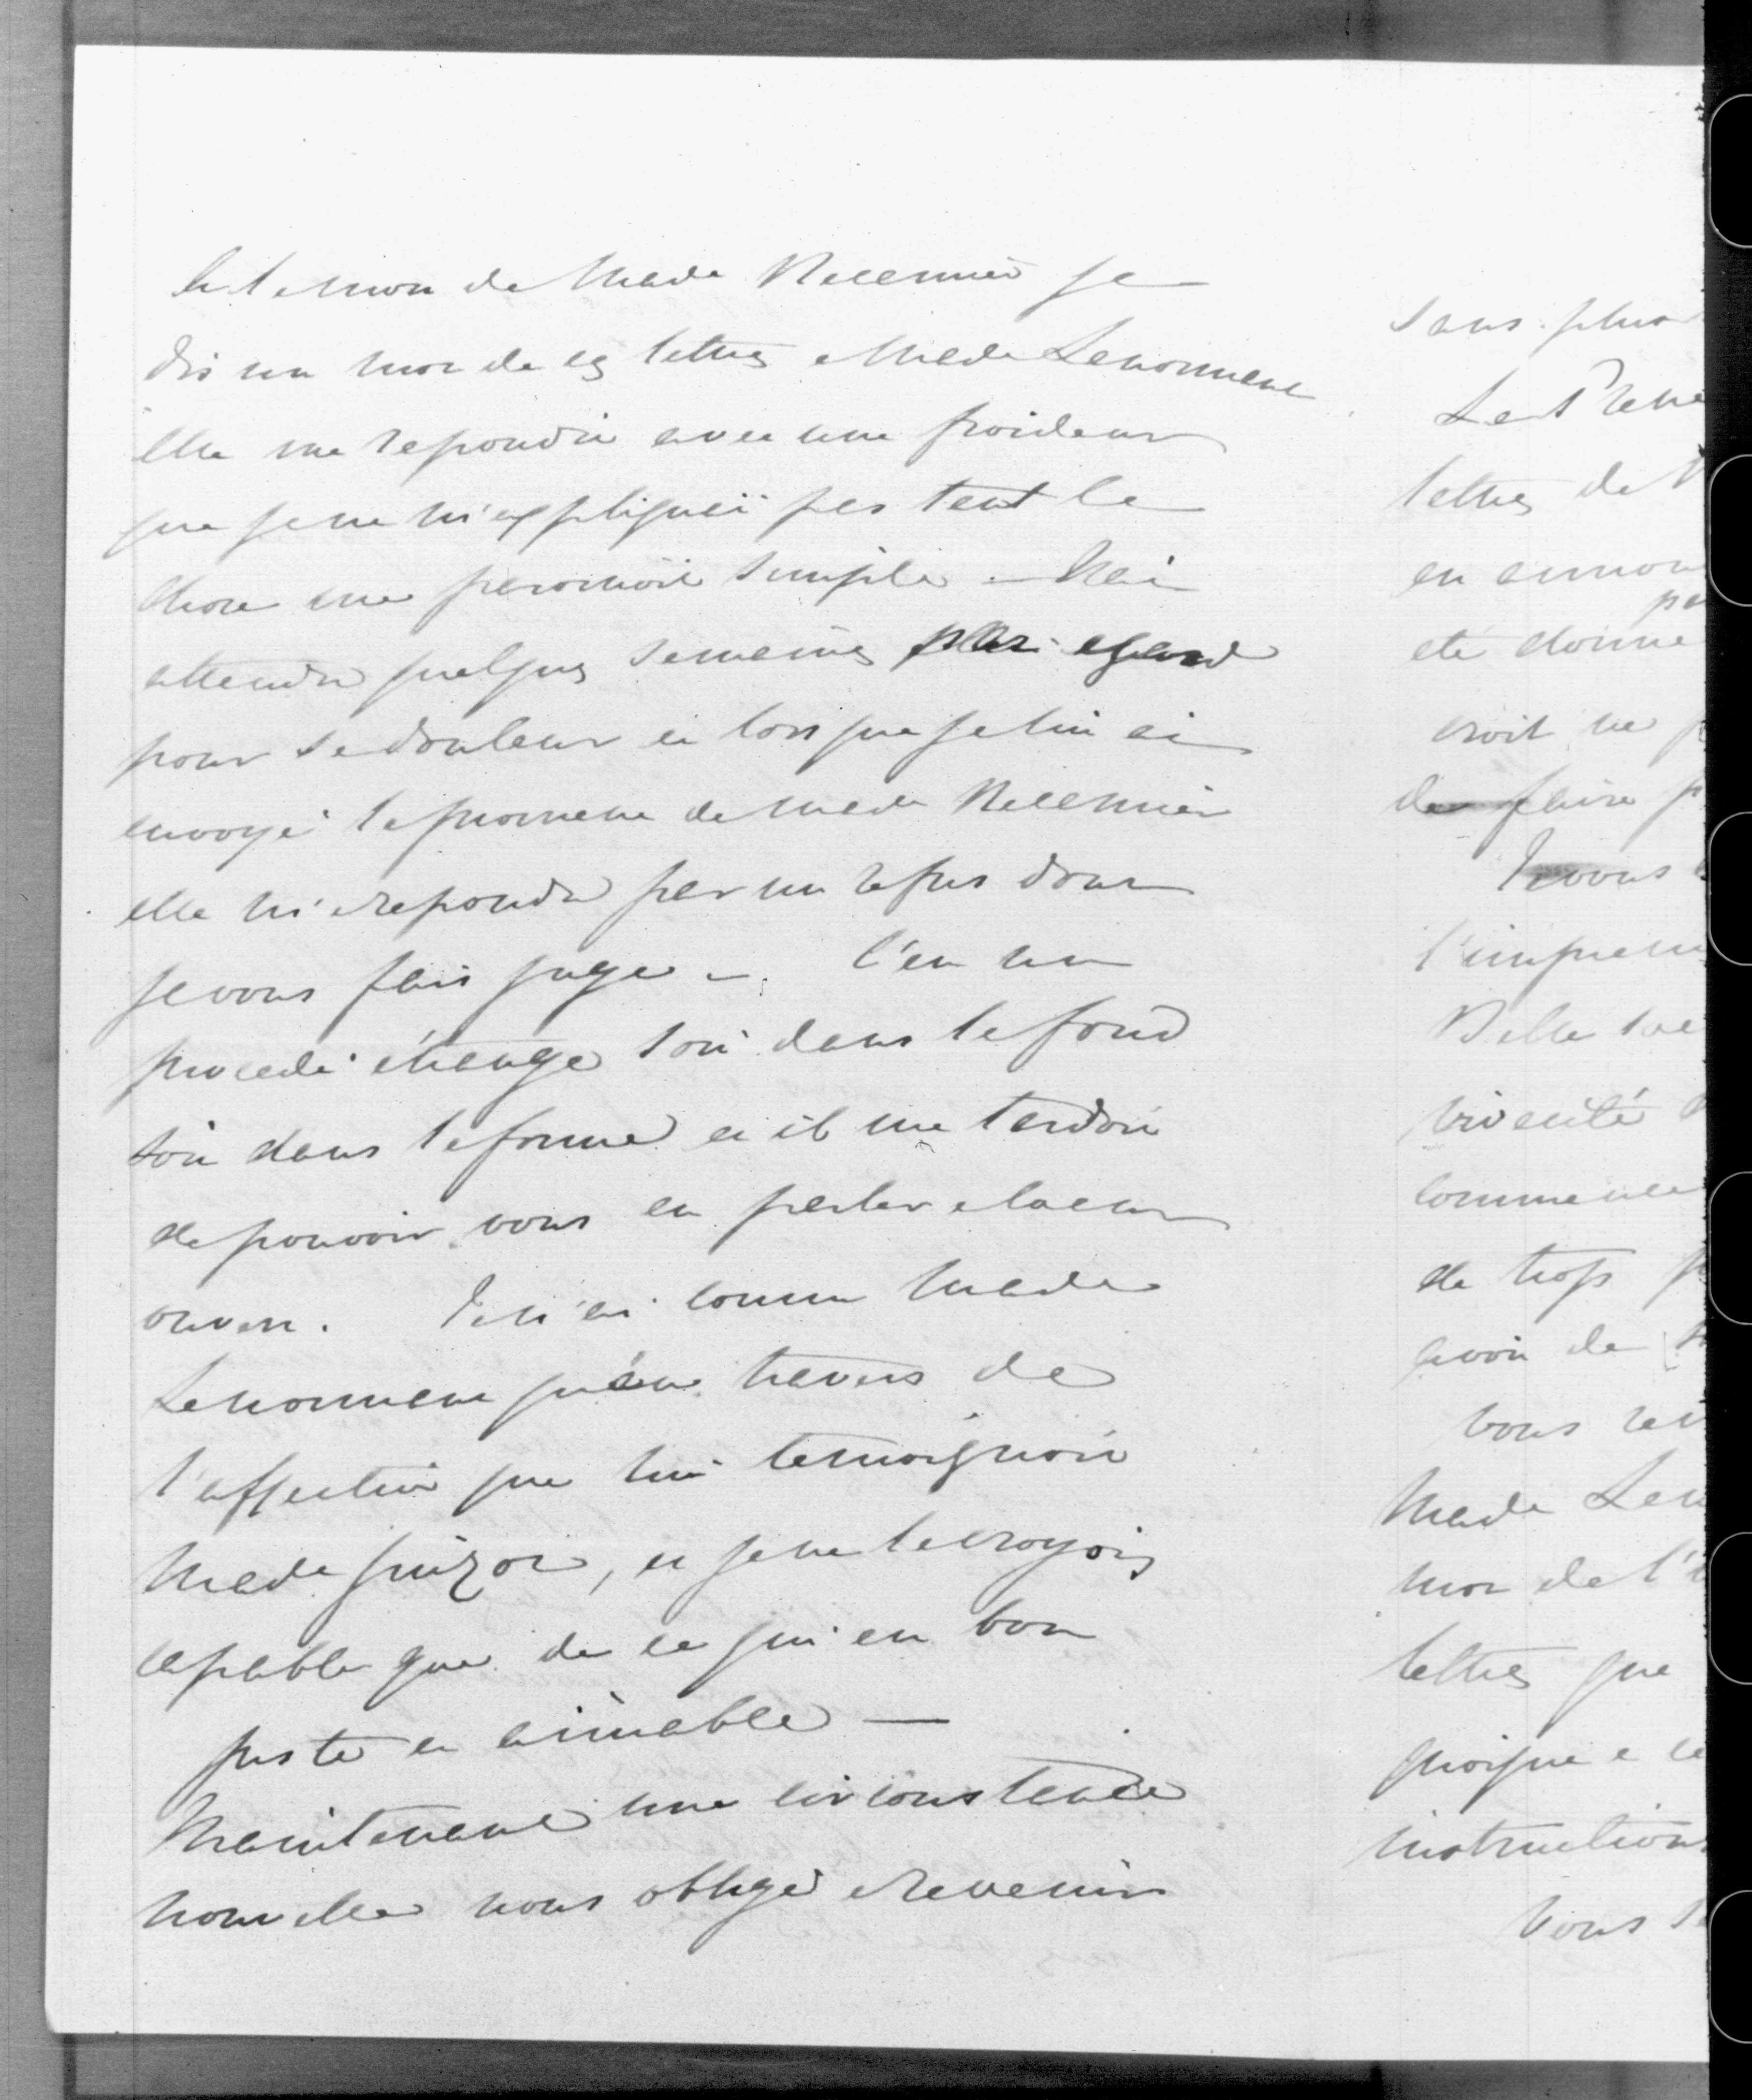 de la mort de Made Récamier je
dis un mot de ces lettres a Made Lenormant
elle me repondit avec une froideur
que je ne m'expliquai pas tant la
chose me paraissoit simple — J'ai
attendu quelques semaines par égard
pour sa douleur et lorsque je lui ai
envoyé la promesse de Made Récamier
elle m'a repondu par un refus dont
je vous fais juge — C'est un
procedé étrange soit dans le fond
soit dans la forme et il me tardoit
de pouvoir vous en parler a coeur
ouvert. Je n'ai connu Made
Lenormant qu'au travers de
l'affection que lui temoignoit
Made Guizot, et je ne la croyois
capable que de ce qui est bon
juste et aimable —
Maintenant une circonstance
nouvelle nous oblige a revenir
sans plus
Le
lettres de
en
eté donné
croit ne
de faire
Je vous
Belle
vivacité
de trop
avoir de
vous
Made
mot de l'
lettres que
quoique a
instructions
Vous